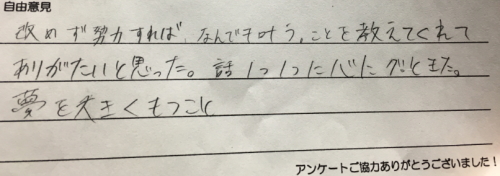 自由意見
改めず努力すれば、なんでも叶う。ことを教えてくれて
ありがたいと思った。話1つ1つに心にグッときた。
夢を大きくもつこと
アンケートご協力ありがとうございました！